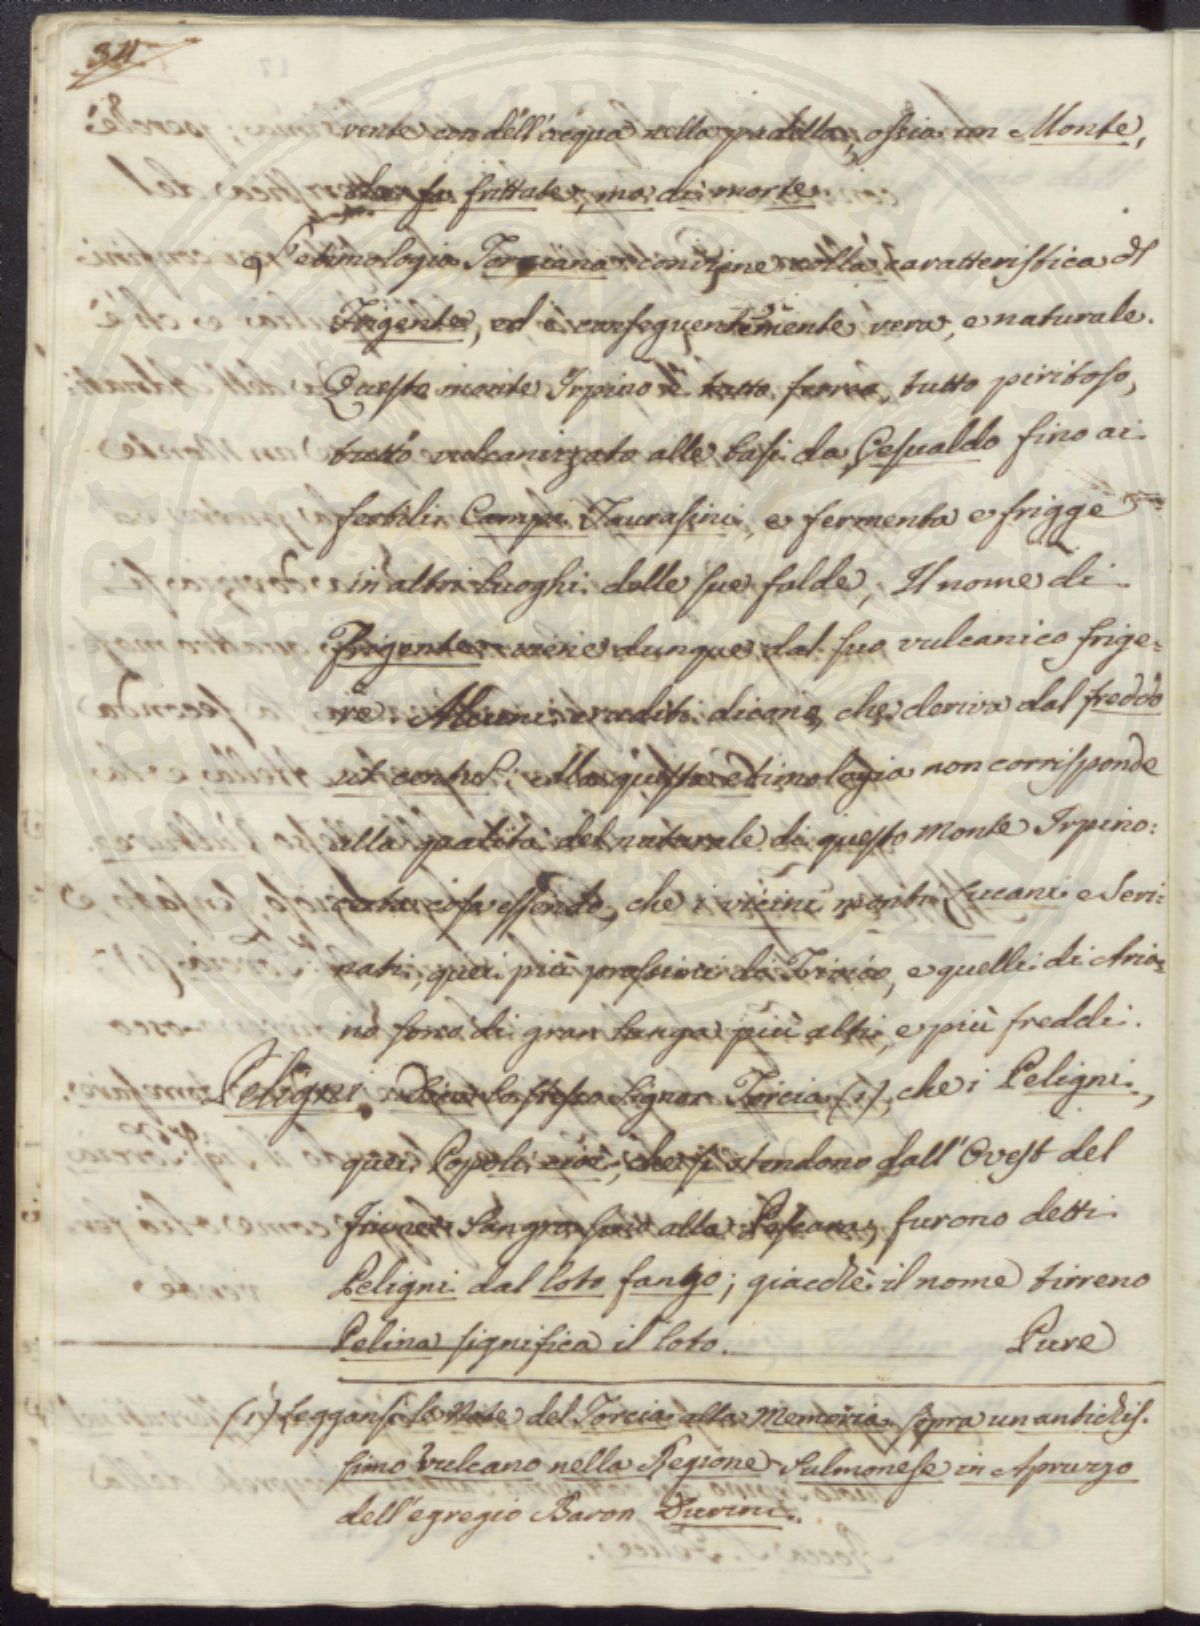 34.
vente con dell'acqua nella padella, ossia un Monte,
che fa frittate, ma di morte.
L'etimologia Torciana conviene colla caratteristica di
Frigente, ed è conseguentemente vera, e naturale.
Questo monte Irpino è tutto ferreo, tutto piritoso,
tutto vulcanizzato alle basi da Gesualdo fino ai
fertili Campi Taurasini, e fermenta e frigge
in altri luoghi delle sue falde, Il nome di
Frigente viene dunque dal suo vulcanico frige=
re Alcuni eruditi dicono, che deriva dal freddo
ut contros; Ma questa etimologia non corrisponde
alla qualità del naturale di questo Monte Irpino:
certa cosa essendo, che i vicini monti Lucani e Seri=
nati, quei più prossimi di Trivico, e quelli di Aria=
no sono di gran lunga più alti, e più freddi.
Peligni. Dice lo stesso Signor Torcia (1), che i Peligni,
quei Popoli cioè, che si stendono dall'Ovest del
Fiume Sangro sino alla Pescara, furono detti
Peligni dal loto fango; giacchè il nome tirreno
Pelina significa il loto. Pure
(1) Leggansi le Note del Torcia alla Memoria sopra un antichis=
simo vulcano nella Regione Sulmonese in Apruzzo
dell'egregio Baron Durini.